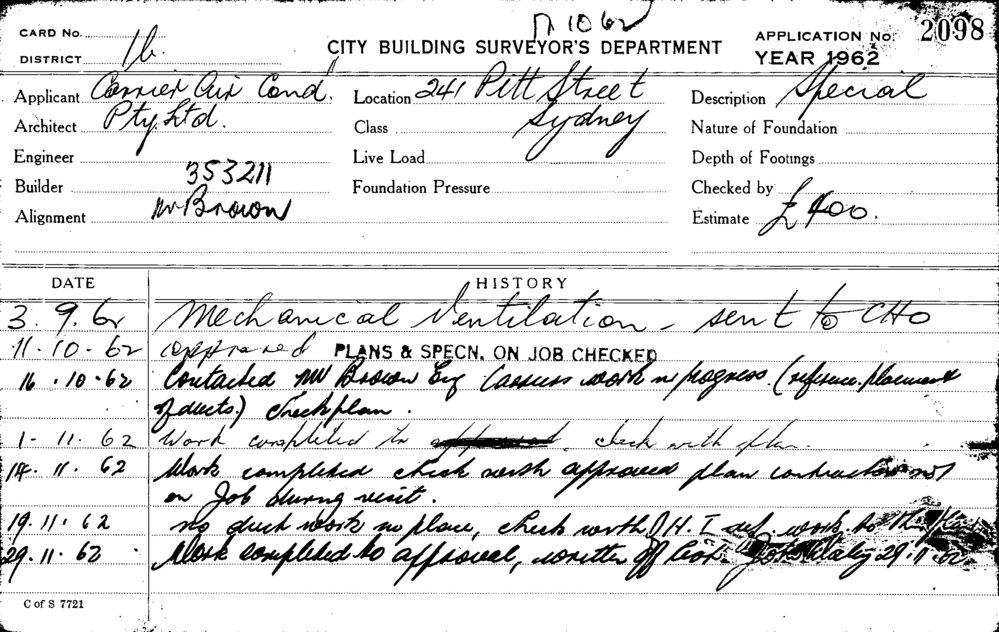 17 10 62
CARD No.
CITY BUILDING SURVEYOR'S DEPARTMENT
APPLICATION No. 2098
DISTRICT 16
YEAR 1962
Applicant Carrier Air Cond.
Pty. Ltd.
Location 241 Pitt Street
Sydney
Description Special
Architect
Class
Nature of Foundation
Engineer
Live Load
Depth of Footings
353211
Builder
Foundation Pressure
Checked by
Alignment Mr Brown
Estimate £400.
DATE HISTORY
3. 9. 62 Mechanical Ventilation - sent to CHO
11. 10. 62 approved PLANS & SPECN. ON JOB CHECKED
16. 10. 62 Contacted Mr Brown Eng Carriers work in progress. (reference placement
of ducts.) Check plan.
1- 11. 62 Work completed to check with plan.
14. 11. 62 Work completed check with approved plan contractor not
on Job during visit.
19. 11. 62 no duct work in place, check with H.I. work to
29. 11. 62 Work completed to approval, written off 29.11.62
C of S 7721